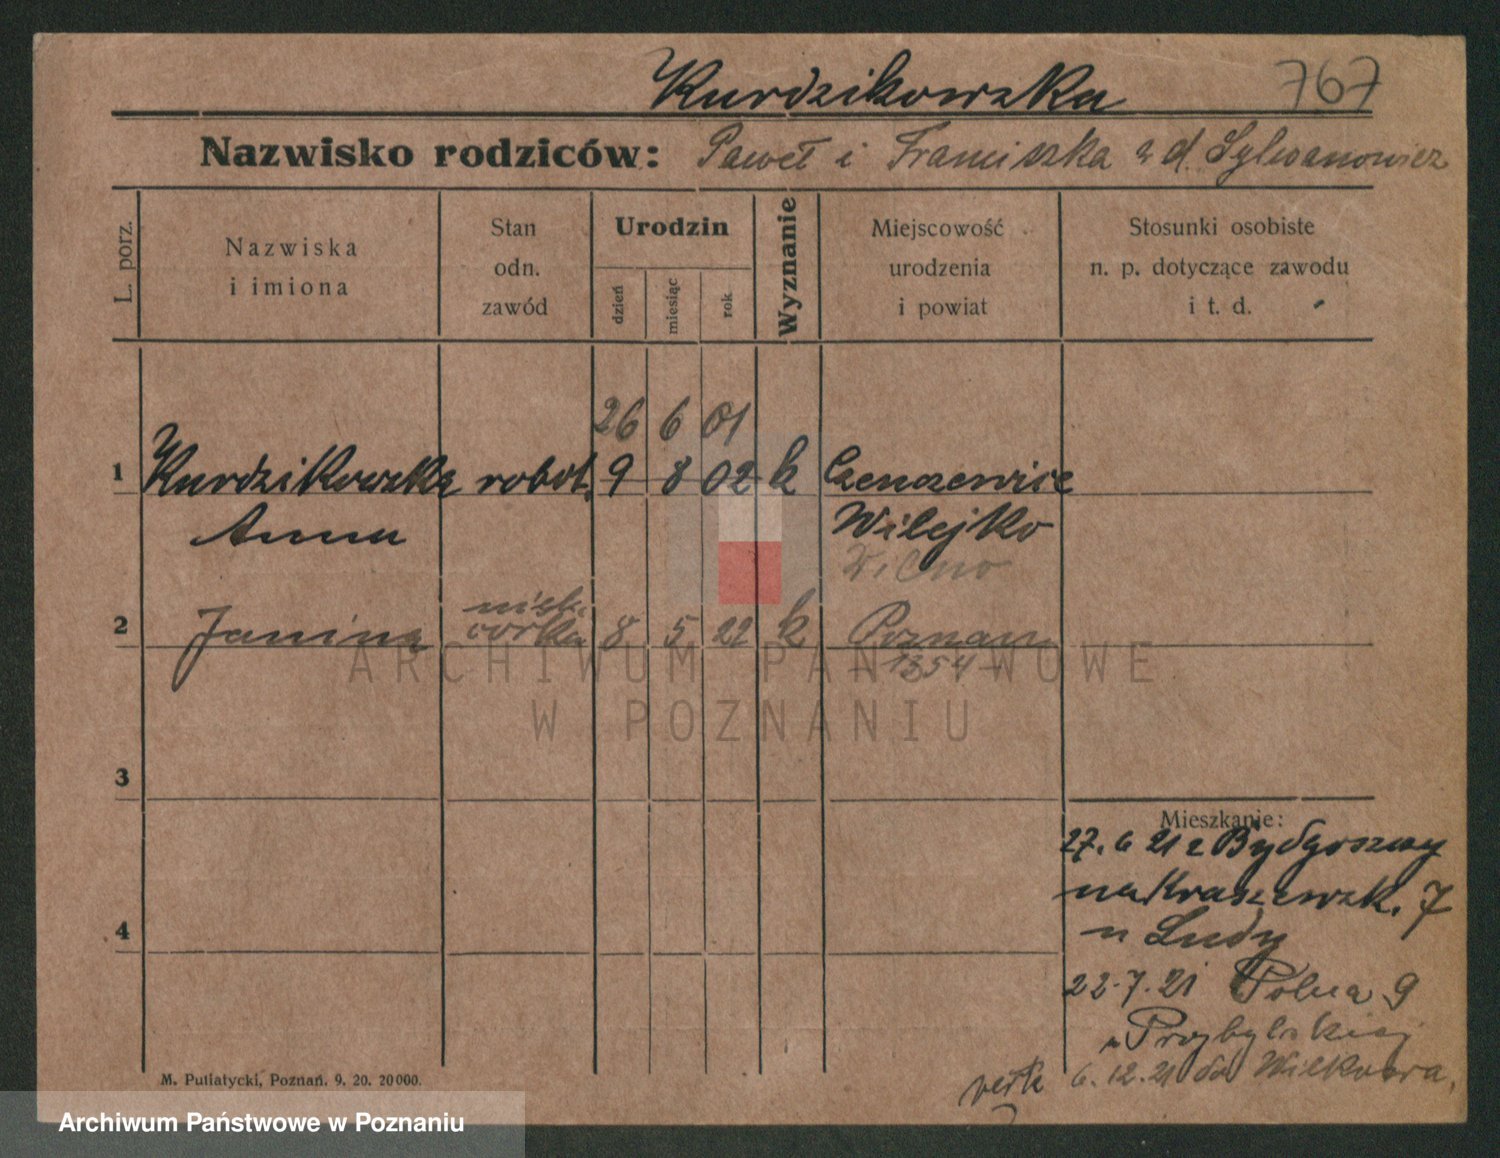 Kurdzikowska 767
Nazwisko rodziców: Paweł i Franciszka z d. Sylwanowicz
L. porz.
Nazwiska
i imiona
Stan
odn.
zawód
Urodzin
dzień
miesiąc
rok
Wyznanie
Miejscowość
urodzenia
i powiat
Stosunki osobiste
n. p. dotyczące zawodu
i t. d.
26 6 01
1 Kurdzikowska robot. 9 8 02 k
Anna Wilejko
Wilno
2 Janina córka 8 5 22 k Poznań
1354
ARCHIWUM PAŃSTWOWE
W POZNANIU
3
4
Mieszkanie:
27. 6 21 z Bydgoszczy
na Kraszewsk. 7
u Ludy
22.7.21 Polna 9
u Przybylskiej
6.12.21 do
M. Putiatycki, Poznań. 9. 20. 20000.
Archiwum Państwowe w Poznaniu